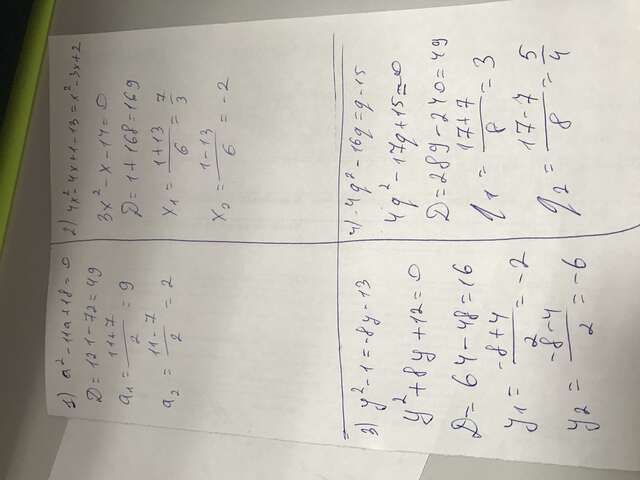 1) a² - 11a + 18 = 0
D = 121 - 72 = 49
a₁ = (11+7)/2 = 9
a₂ = (11-7)/2 = 2
2) 4x² - 4x + 1 - 13 = x² - 3x + 2
3x² - x - 14 = 0
D = 1 + 168 = 169
x₁ = (1+13)/6 = 7/3
x₂ = (1-13)/6 = -2
3) y² - 1 = -8y - 13
y² + 8y + 12 = 0
D = 64 - 48 = 16
y₁ = (-8+4)/2 = -2
y₂ = (-8-4)/2 = -6
4) 4q² - 16q = q - 15
4q² - 17q + 15 = 0
D = 289 - 240 = 49
q₁ = (17+7)/8 = 3
q₂ = (17-7)/8 = 5/4